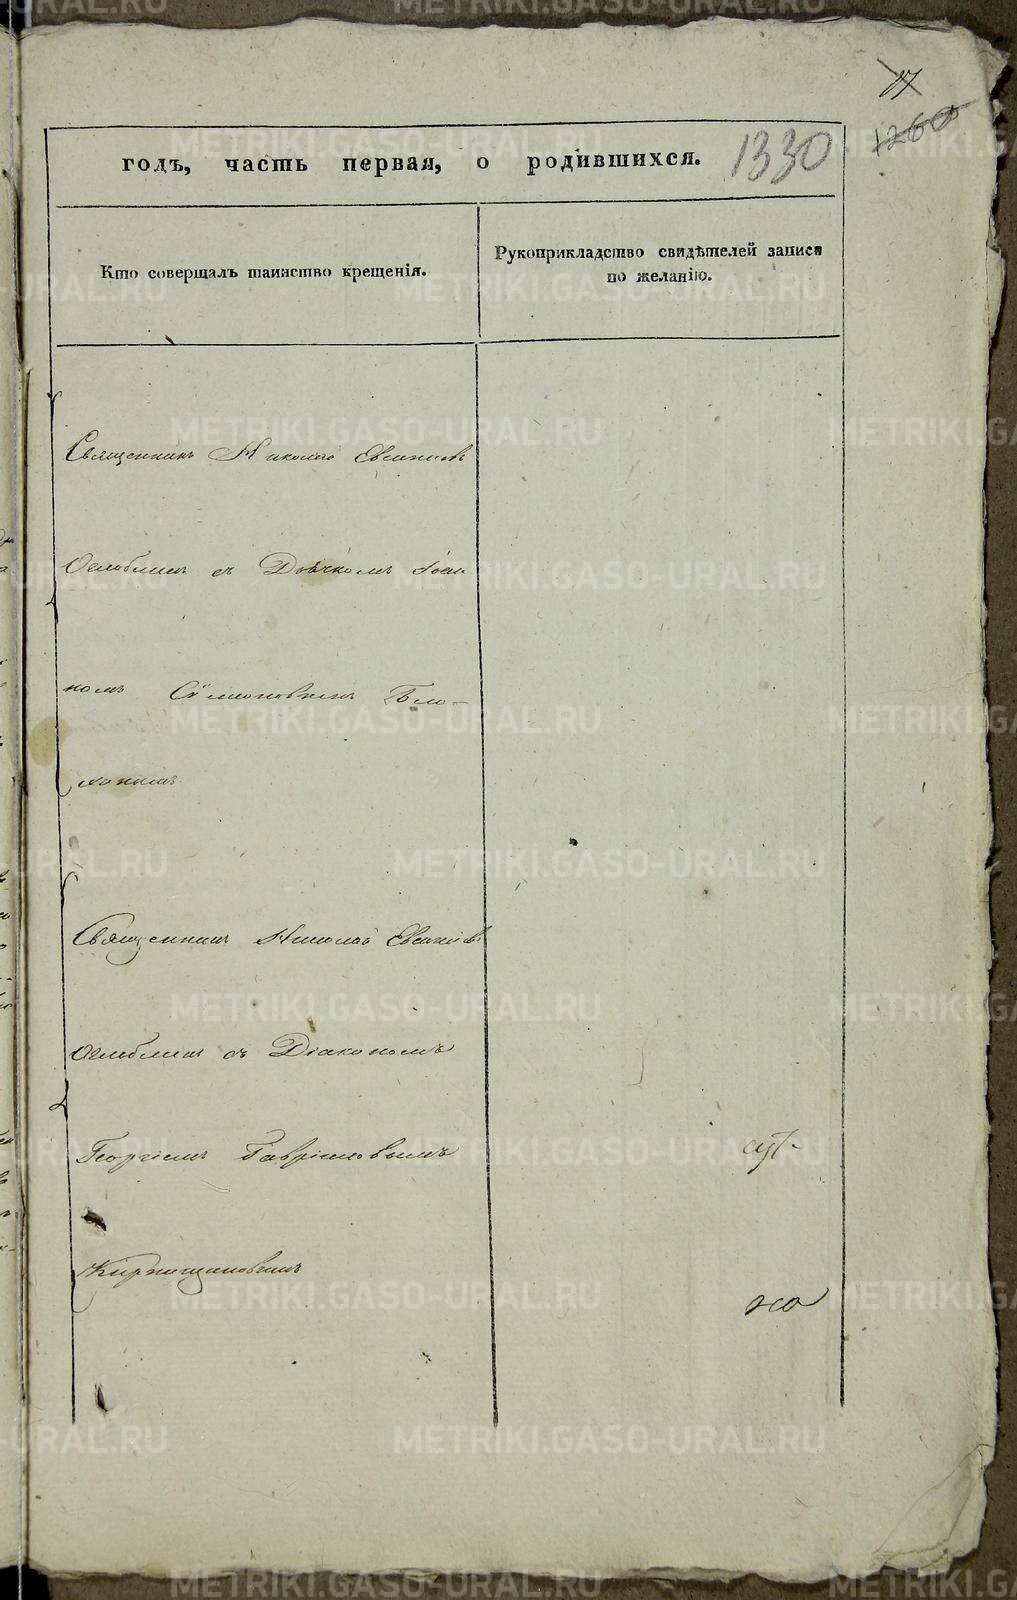 17
1260
годъ, часть первая, о родившихся. 1330
Кто совершалъ таинство крещенія.
Рукоприкладство свидѣтелей записи
по желанію.
Священникъ Николай Евсинѣевъ
Оглоблинъ съ Дьячкомъ Іоан
номъ Сѵмеоновымъ Бло-
хинымъ
Священникъ Николай
Оглоблинъ съ Діакономъ
Георгіемъ Гавріиловымъ
METRIKI.GASO-URAL.RU